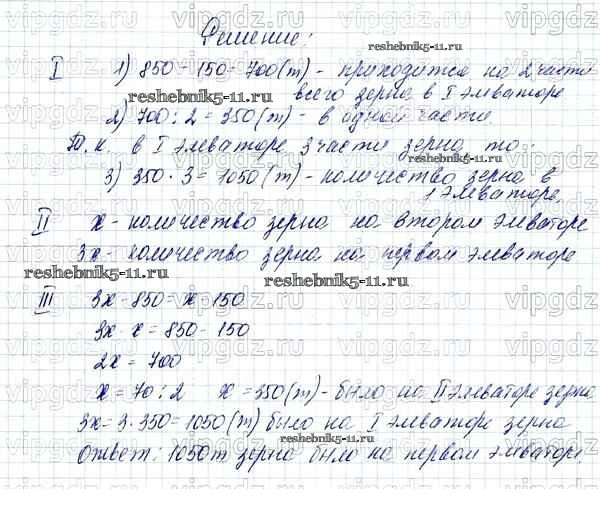 Решение:
I 1) 850 - 150 = 700 (т) - приходится на 2 части
всего зерна в I элеваторе
2) 700 : 2 = 350 (т) - в одной части.
Т.к. в I элеваторе 3 части зерна, то:
3) 350 · 3 = 1050 (т) - количество зерна в
1 элеваторе.
II х - количество зерна на втором элеваторе
3х - количество зерна на первом элеваторе
III 3х - 850 = х - 150
3х - х = 850 - 150
2х = 700
х = 70 : 2 х = 350 (т) - было на II элеваторе зерна
3х = 3 · 350 = 1050 (т) было на I элеваторе зерна
Ответ: 1050т зерна было на первом элеваторе.
reshebnik5-11.ru
reshebnik5-11.ru
reshebnik5-11.ru
reshebnik5-11.ru
reshebnik5-11.ru
vipgdz.ru